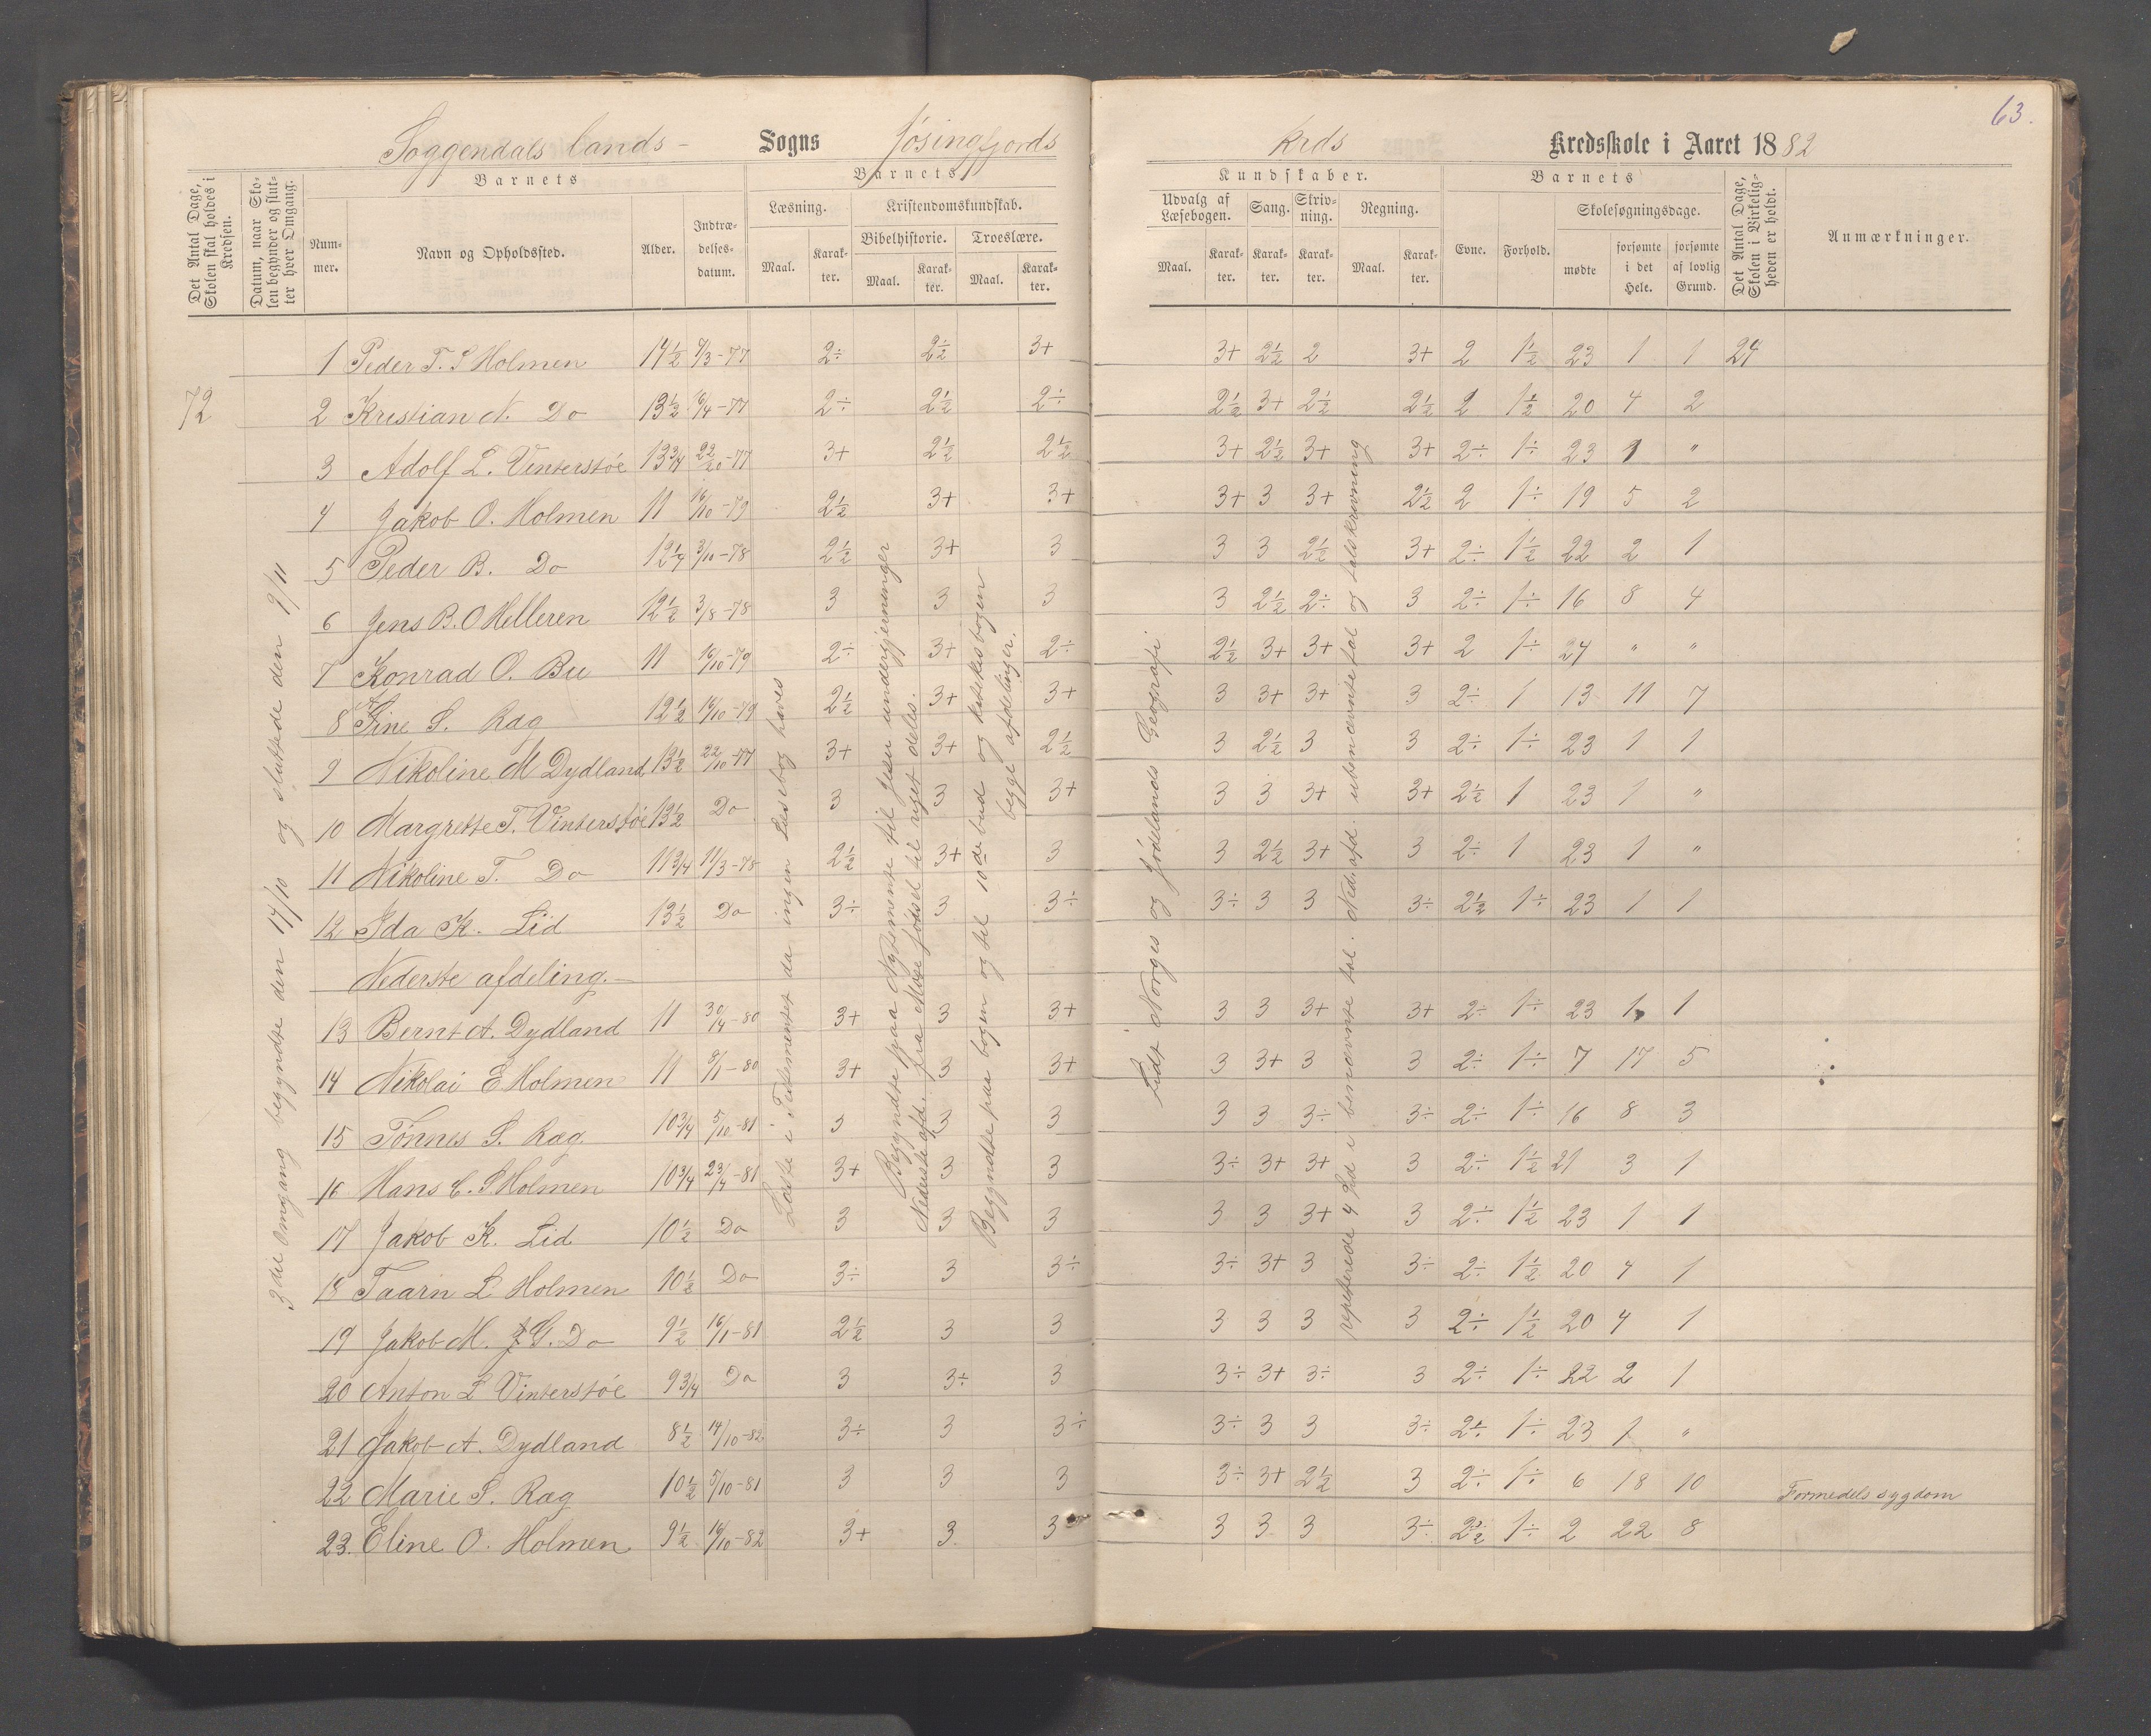 63.
Soggendals lands- Sogns Jøsingfjords Kreds Kredsskole i Aaret 1882
Det Antal Dage, Skolen skal holdes i Kredsen.
Datum, naar Skolen begynder og slutter hver Omgang.
Barnets
Nummer.
Navn og Opholdssted.
Alder.
Indtrædelsesdatum.
Barnets
Læsning.
Maal.
Karakter.
Kristendomskundskab.
Bibelhistorie.
Maal.
Karakter.
Troeslære.
Maal.
Karakter.
Kundskaber.
Udvalg af Læsebogen.
Maal.
Karakter.
Sang.
Karakter.
Skrivning.
Karakter.
Regning.
Maal.
Karakter.
Barnets
Evne.
Forhold.
Skolesøgningsdage.
mødte
forsømte i det Hele.
forsømte af lovlig Grund.
Det Antal Dage, Skolen i Virkeligheden er holdt.
Anmærkninger.
72
3die Omgang begyndte den 17/10 og sluttede den 9/11
1 Peder T. S Holmen 14½ 9/3-77 2÷ 2½ 3+ 3+ 2½ 2 3+ 2 1½ 23 1 1 24
2 Kristian N. Do 13½ 16/4-77 2÷ 2½ 2÷ 2½ 3+ 2½ 2½ 2 1½ 20 4 2
3 Adolf L. Vinterstøe 13¾ 22/10-77 3+ 2½ 2½ 3+ 2½ 3+ 3+ 2÷ 1÷ 23 1 "
4 Jakob O. Holmen 11 16/10-79 2½ 3+ 3+ 3+ 3 3+ 2½ 2 1÷ 19 5 2
5 Peder B. Do 12¼ 3/10-78 2½ 3+ 3 3 3 2½ 3+ 2÷ 1½ 22 2 1
6 Jens B. O Helleren 12½ 3/8-78 3 3 3 3 2½ 2÷ 3 2÷ 1÷ 16 8 4
7 Konrad O. Bu 11 16/10-79 2÷ 3+ 2÷ 2½ 3+ 3+ 3+ 2 1÷ 24 " "
8 Sine S. Ræg 12½ 16/10-79 2½ 3+ 3+ 3 3+ 3+ 3 2÷ 1 13 11 7
9 Nikoline M Dydland 13½ 22/10-77 3+ 3+ 2½ 3 2½ 3 3 2÷ 1÷ 23 1 1
10 Margrette T. Vinterstøe 13½ Do 3 3 3+ 3 3 3+ 3+ 2½ 1 23 1 "
11 Nikoline T. Do 11¾ 11/3-78 2½ 3+ 3 3 2½ 3+ 3 2÷ 1 23 1 "
12 Ida K. Lid 13½ Do 3÷ 3 3÷ 3÷ 3 3 3÷ 2½ 1÷ 23 1 1
Nederste afdeling.
13 Bernt A. Dydland 11 30/4-80 3+ 3 3+ 3 3 3+ 3+ 2÷ 1÷ 23 1 1
14 Nikolai E Holmen 11 9/1-80 3+ 3 3+ 3 3+ 3 3 2÷ 1÷ 7 17 5
15 Tønnes S. Ræg 10¾ 5/10-81 3 3 3 3 3 3÷ 3÷ 2÷ 1÷ 16 8 3
16 Hans C. S Holmen 10¾ 23/4-81 3+ 3 3 3÷ 3+ 3+ 3 2÷ 1½ 21 3 1
17 Jakob K. Lid 10½ Do 3 3 3 3 3 3+ 3 2÷ 1½ 23 1 1
18 Taarn L Holmen 10½ Do 3÷ 3 3÷ 3÷ 3+ 3 3÷ 2÷ 1½ 20 4 1
19 Jakob M. G. Do 9½ 16/1-81 2½ 3 3 3 3 3 3 2÷ 1½ 20 4 1
20 Anton L Vinterstøe 9¾ Do 3 3÷ 3 3÷ 3+ 3÷ 3 2÷ 1÷ 22 2 1
21 Jakob A. Dydland 8½ 14/10-82 3÷ 3 3÷ 3÷ 3 3 3÷ 2÷ 1÷ 23 1 "
22 Marie S. Ræg 10½ 5/10-81 3 3 3 3÷ 3+ 2½ 3 2÷ 1÷ 6 18 10 Formedels sygdom
23. Eline O. Holmen 9½ 14/10-82 3+ 3 3 3 3 3 3÷ 2½ 1÷ 2 22 8
Læste i Testamentet da ingen Læsebog haves
Begyndte paa Nytestamente til Jesu undergjerninger
Nederste afd. fra Mose fødsel til riget deles.
Begyndte paa bogen og til 10de bud og kutkisbogen
begge afdelinger.
Lidt Norges og Jødelands Geografi
repeterede 4 Spd i benævnte tal. Ned. afd. ubenævnte tal og talskrivning